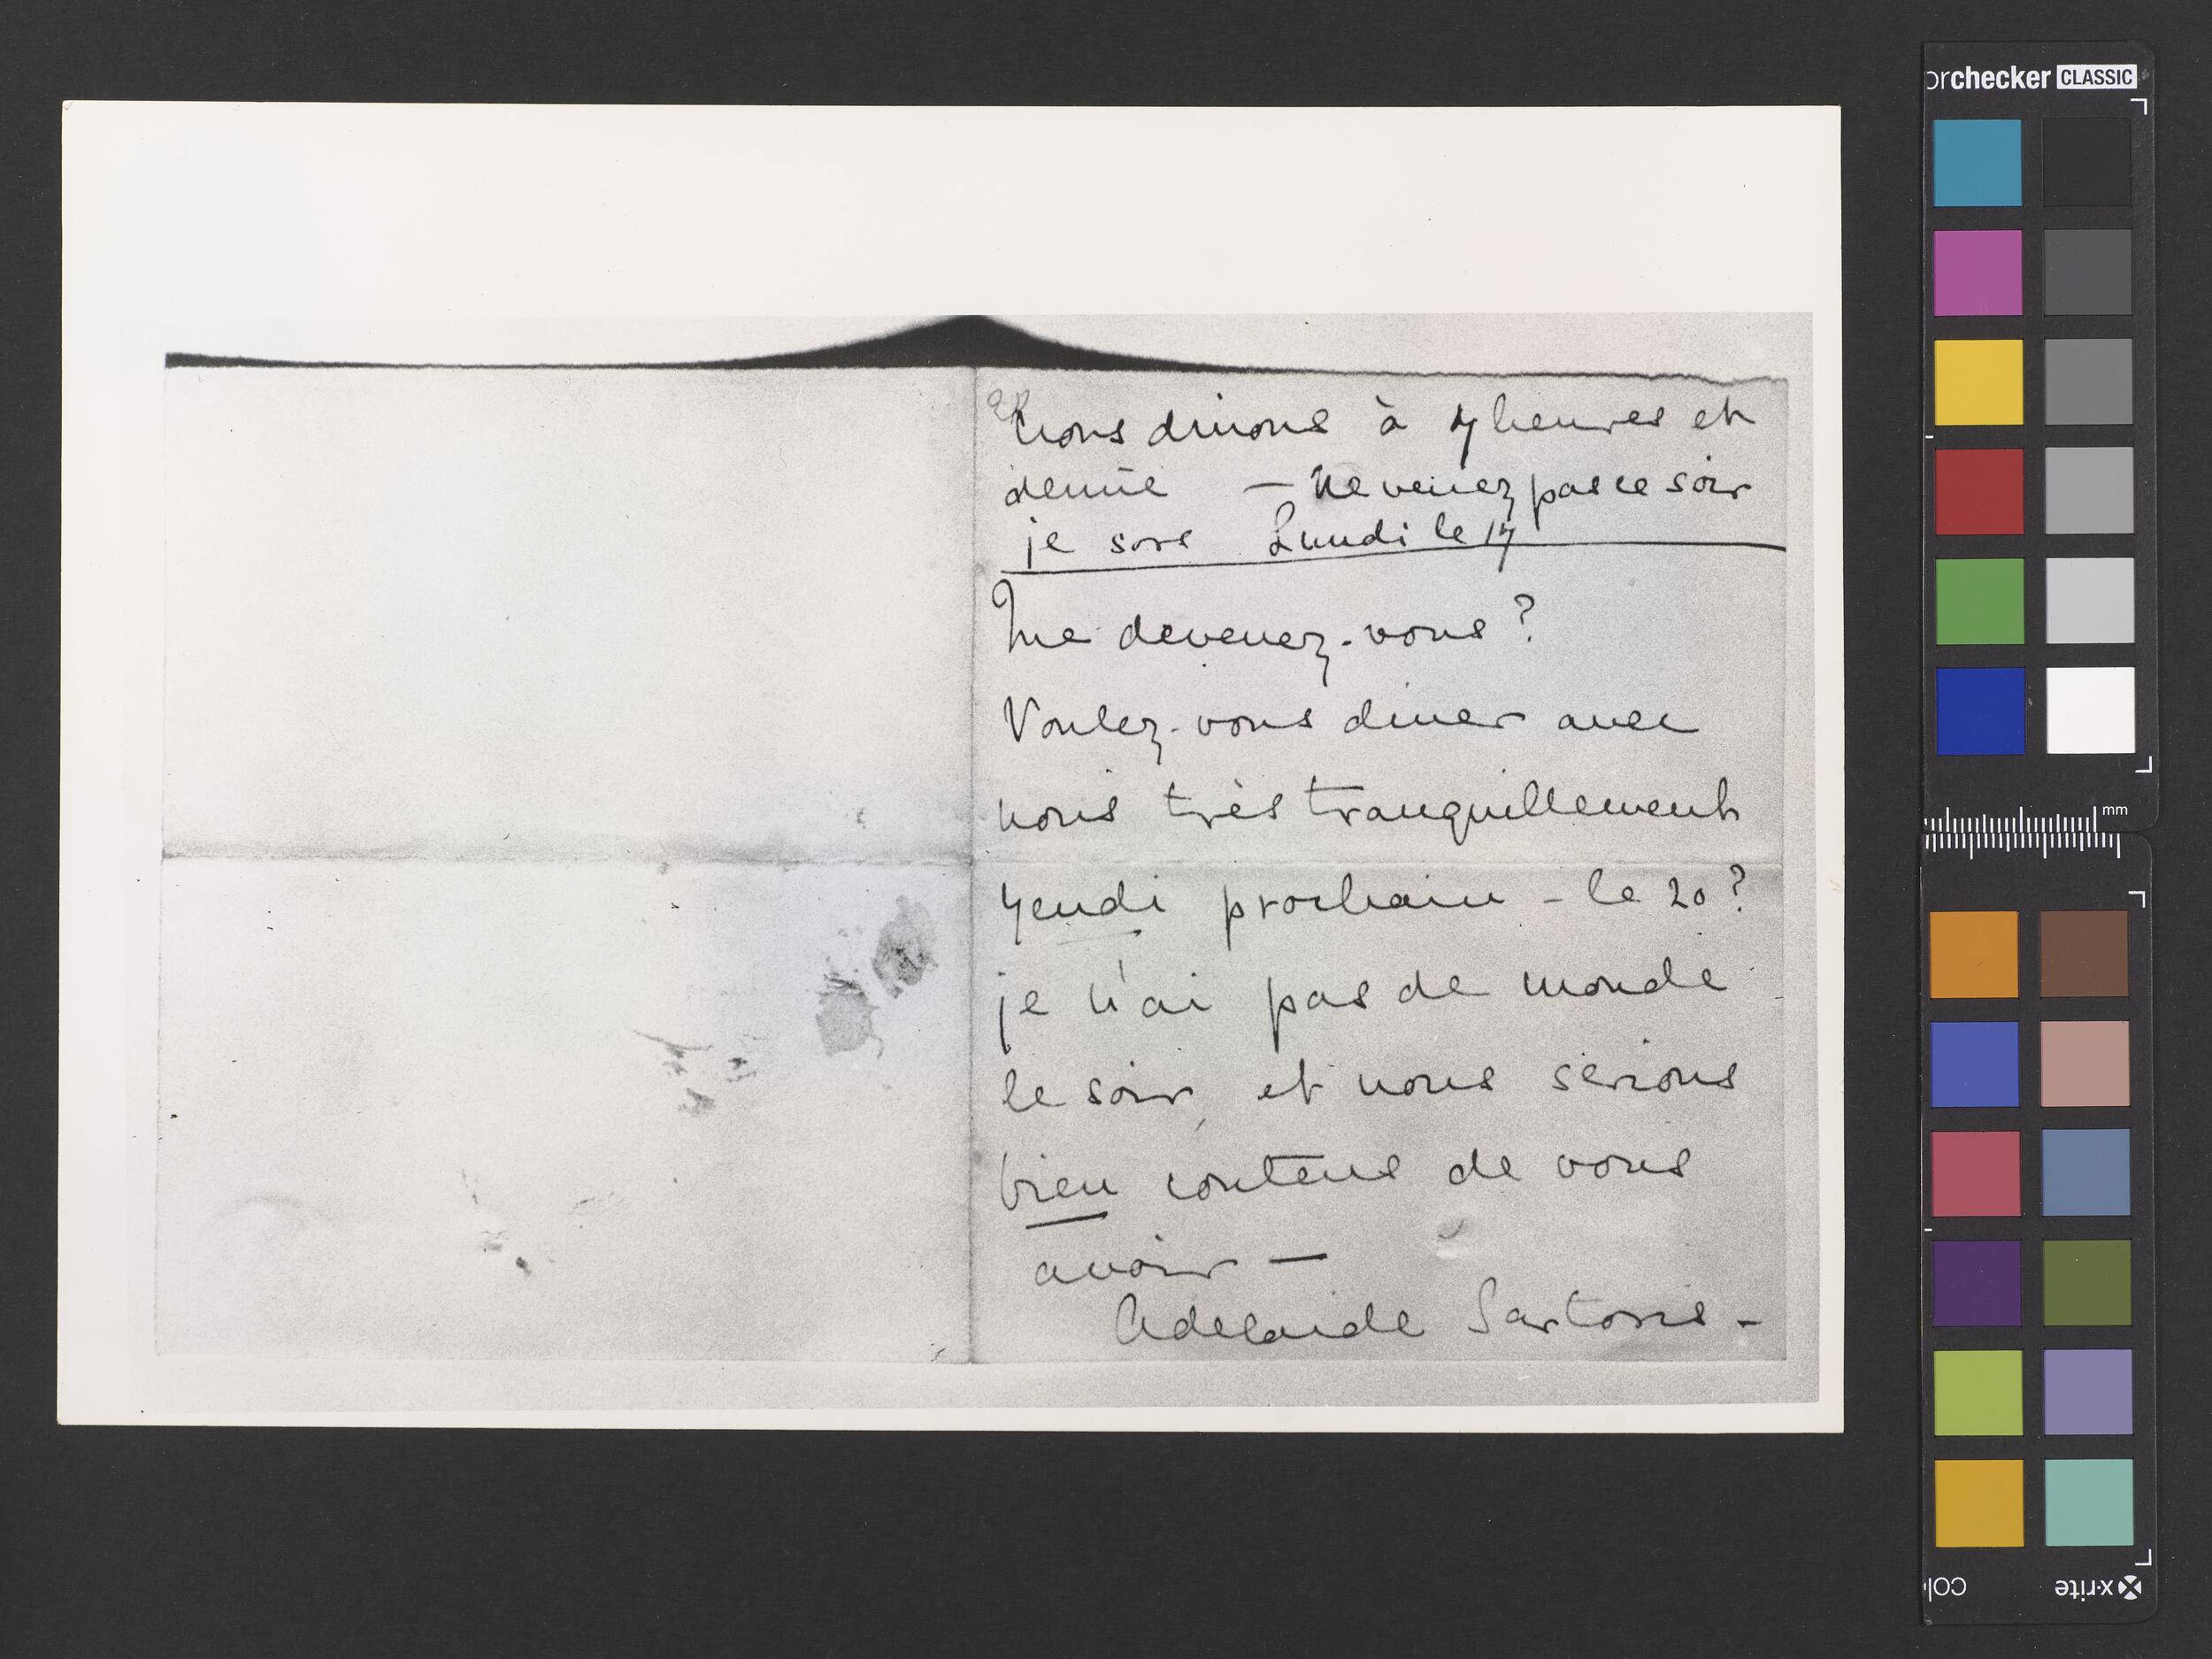 nous dinons à 7 heures et
demie — Ne venez pas ce soir
je sors Lundi le 17
Que devenez-vous?
Voulez-vous diner avec
nous très tranquillement
Jeudi prochain - le 20?
je n'ai pas de monde
le soir, et nous serions
bien contens de vous
avoir —
Adelaide Sartoris -
orchecker CLASSIC
mm
x-rite
col